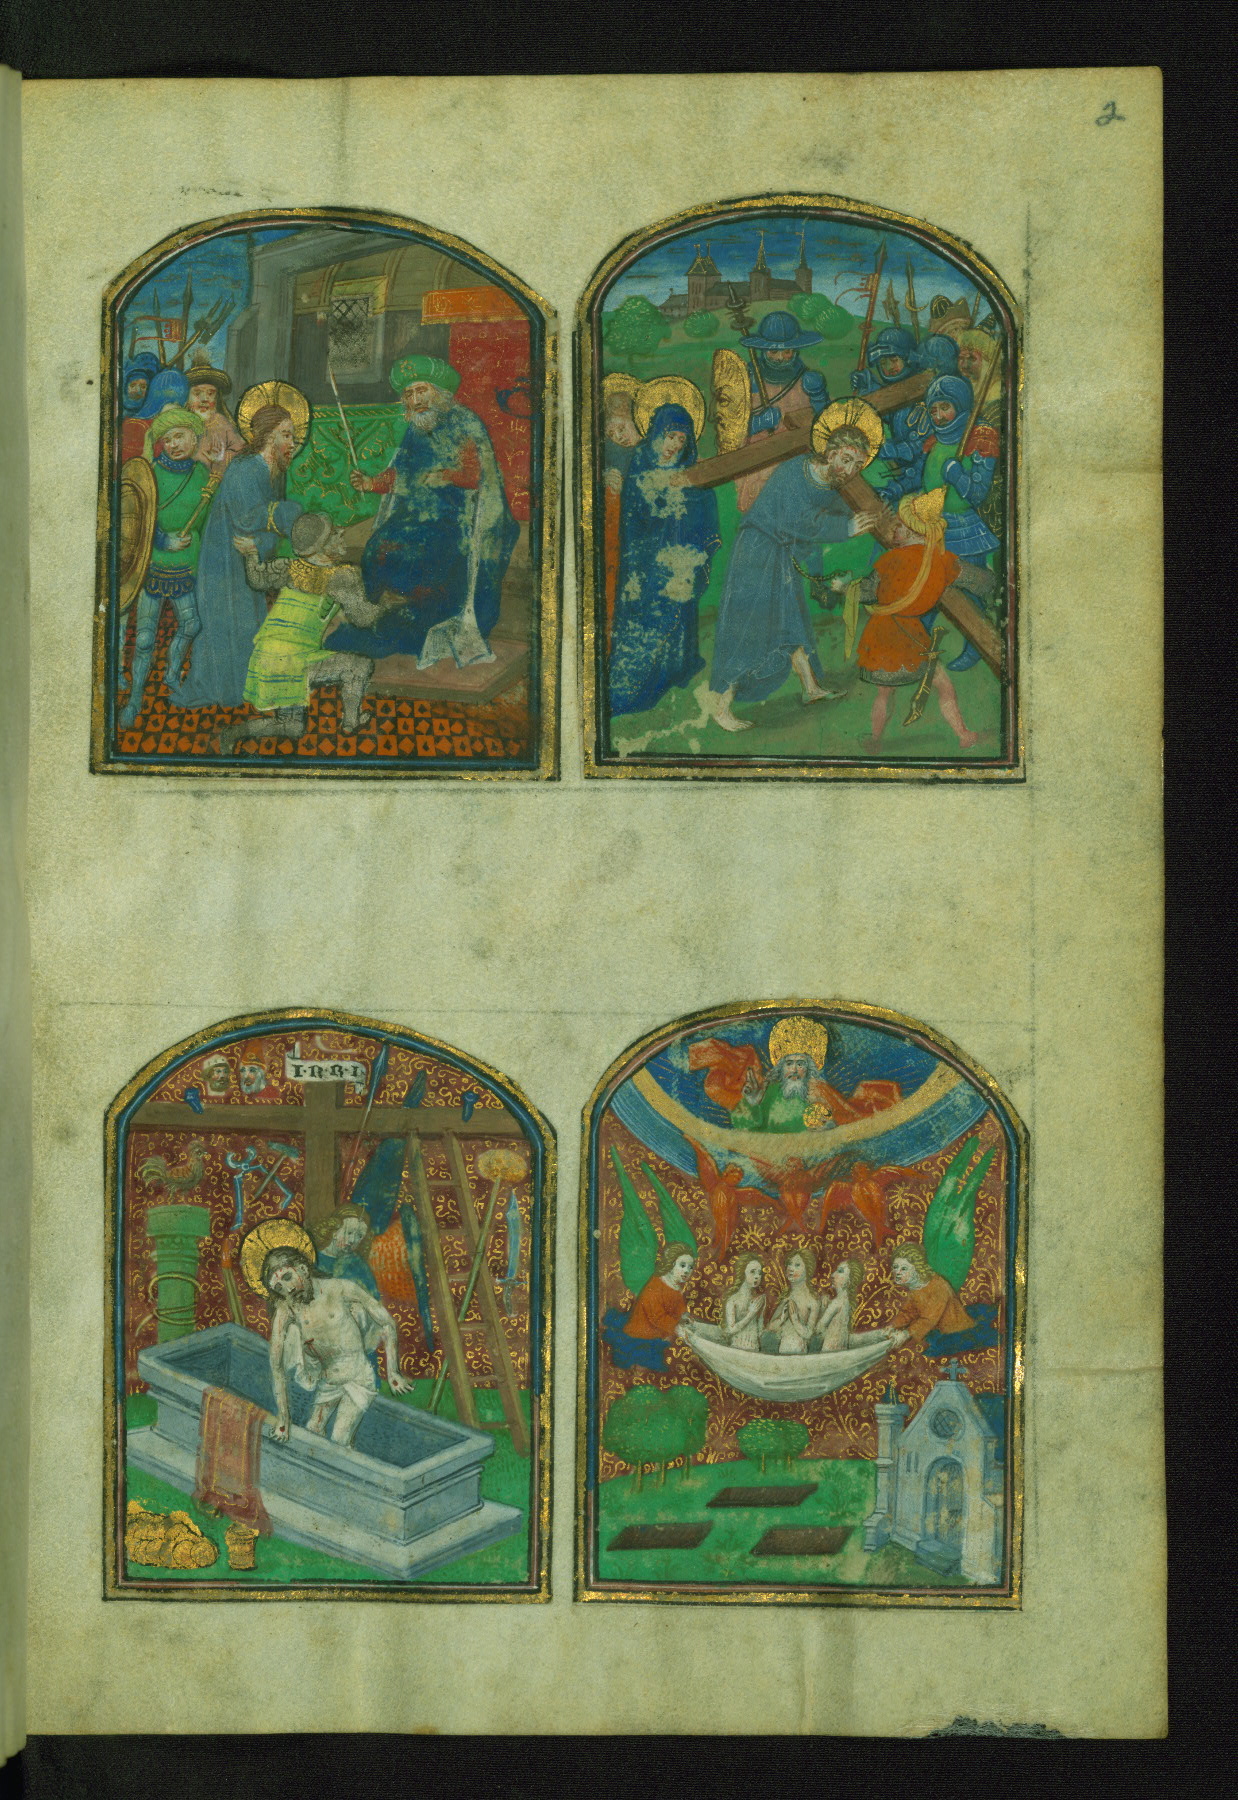 2
I·N·R·I